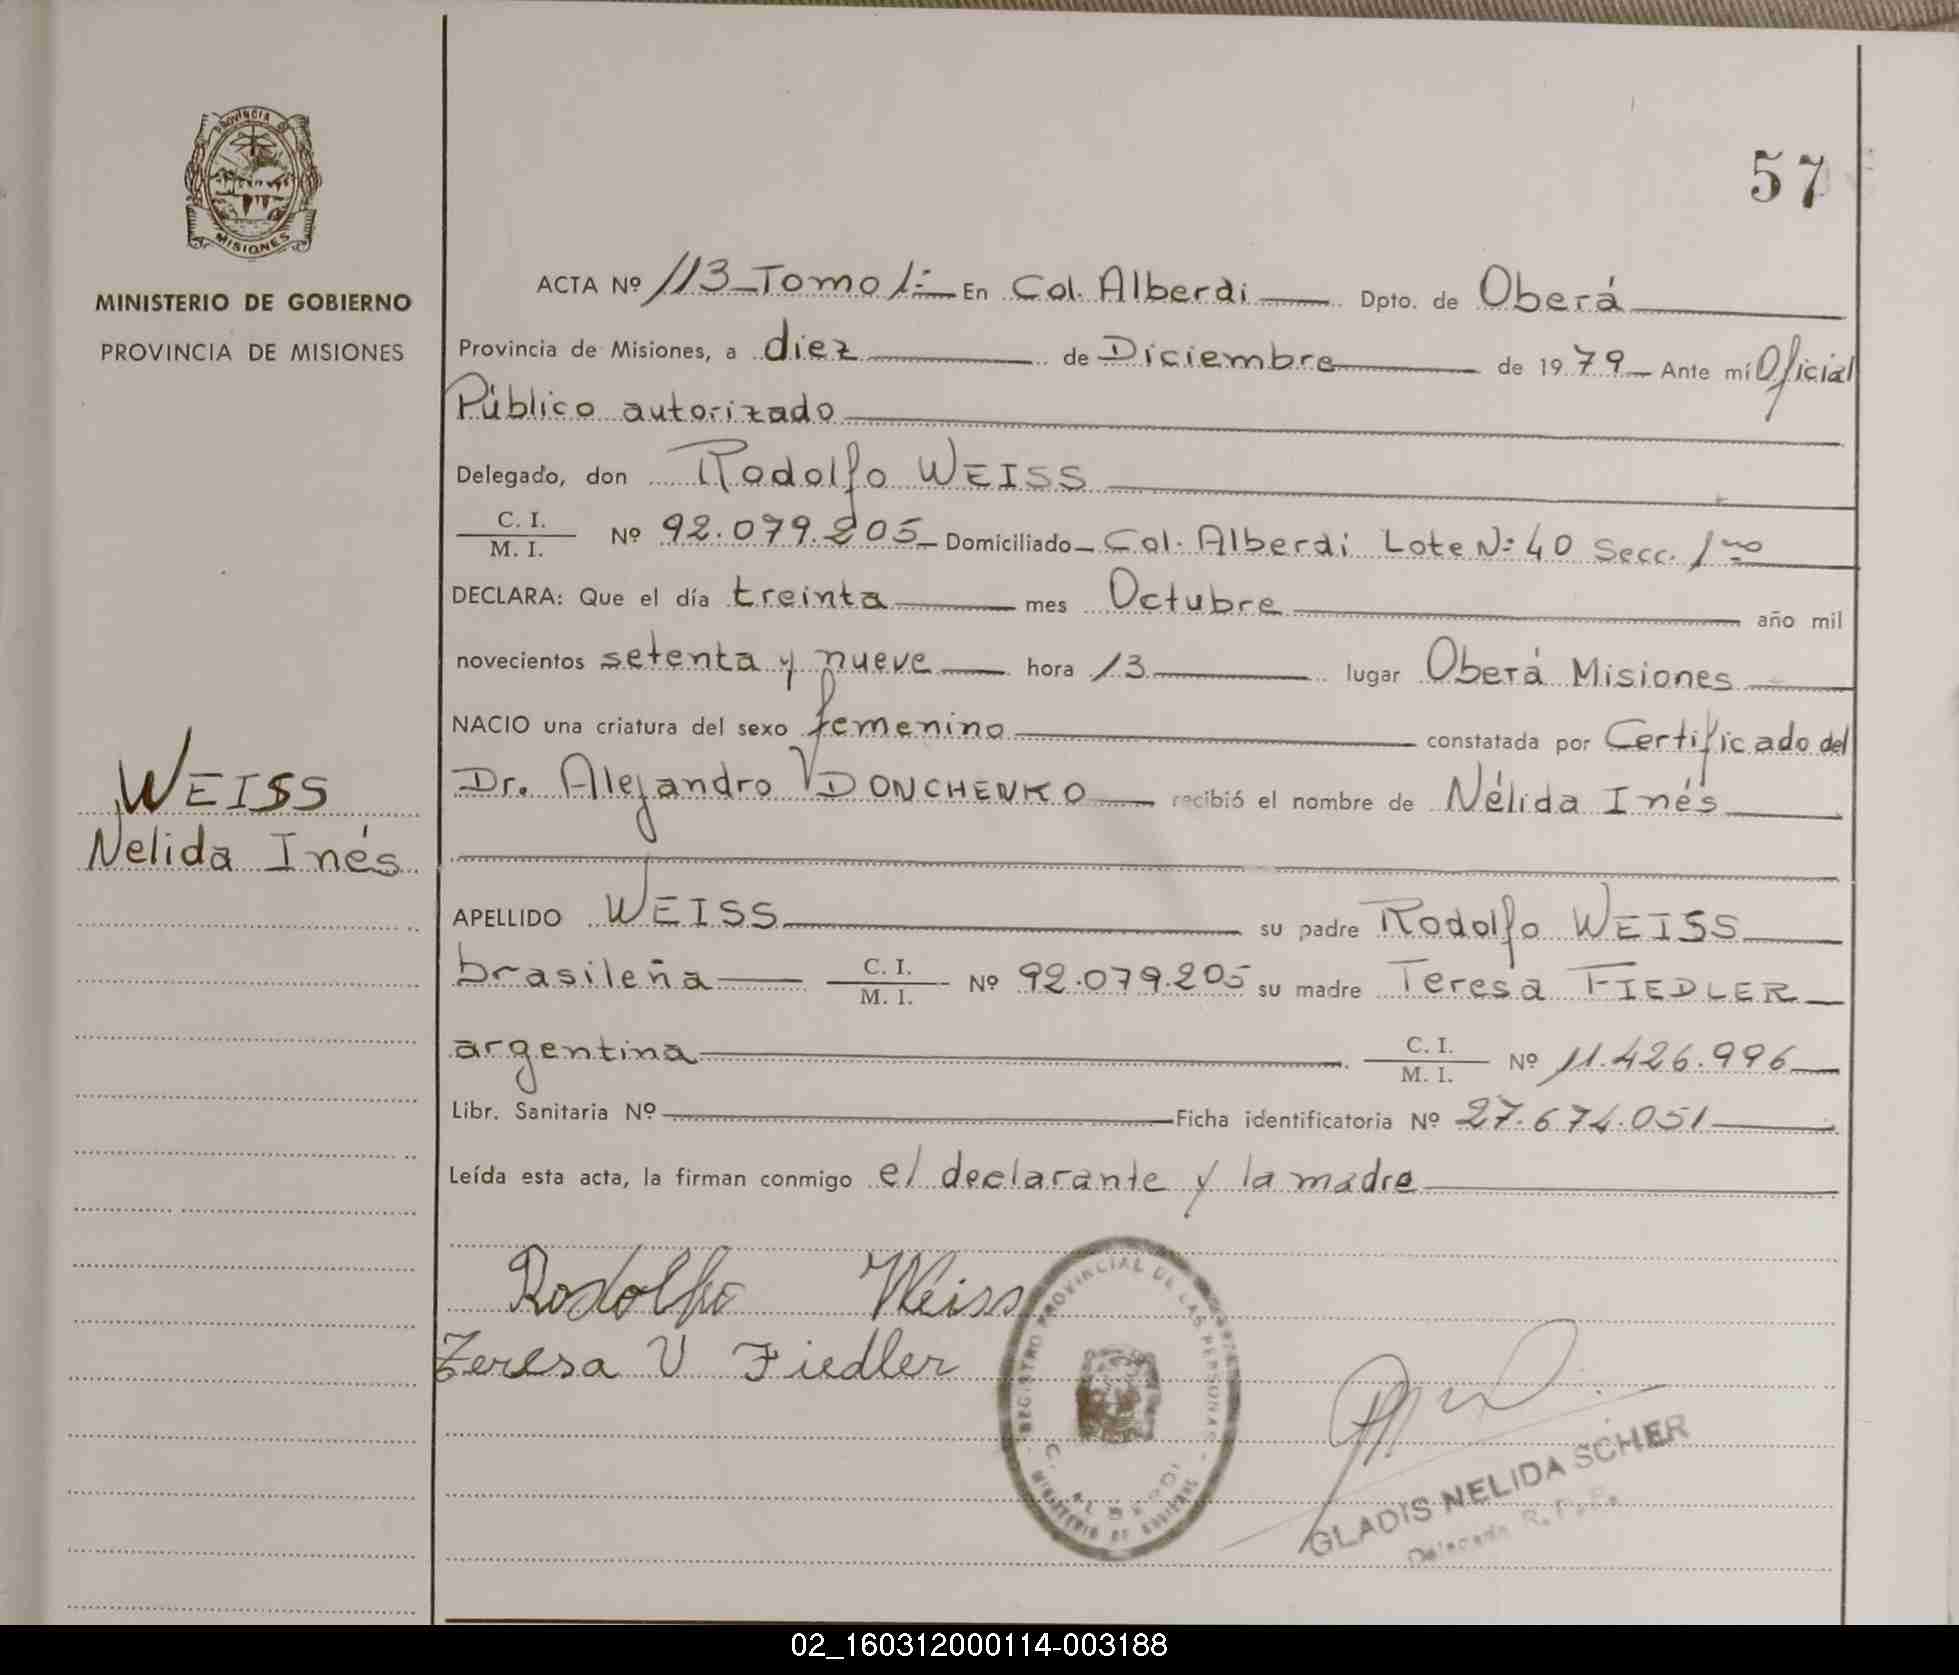 PROVINCIA DE
MISIONES
MINISTERIO DE GOBIERNO
PROVINCIA DE MISIONES
WEISS
Nelida Inés
57
ACTA Nº 113 Tomo 1º En Col. Alberdi Dpto. de Oberá
Provincia de Misiones, a diez de Diciembre de 1979 Ante mí Oficial
Público autorizado
Delegado, don Rodolfo WEISS
C. I.
M. I. Nº 92.079.205 Domiciliado Col. Alberdi Lote Nº 40 Secc. 1ra
DECLARA: Que el día treinta mes Octubre año mil
novecientos setenta y nueve hora 13 lugar Oberá Misiones
NACIO una criatura del sexo femenino constatada por Certificado del
Dr. Alejandro VDONCHENKO recibió el nombre de Nélida Inés
APELLIDO WEISS su padre Rodolfo WEISS
brasileña C. I. M. I. Nº 92.079.205 su madre Teresa FIEDLER
argentina C. I. M. I. Nº 11.426.996
Libr. Sanitaria Nº Ficha identificatoria Nº 27.674.051
Leída esta acta, la firman conmigo el declarante y la madre
Rodolfo Weiss
Teresa V Fiedler
REGISTRO PROVINCIAL DE LAS PERSONAS
C. ALBERDI
MINISTERIO DE GOBIERNO
GLADIS NELIDA SCHER
Delegada R. P. P.
02_160312000114-003188